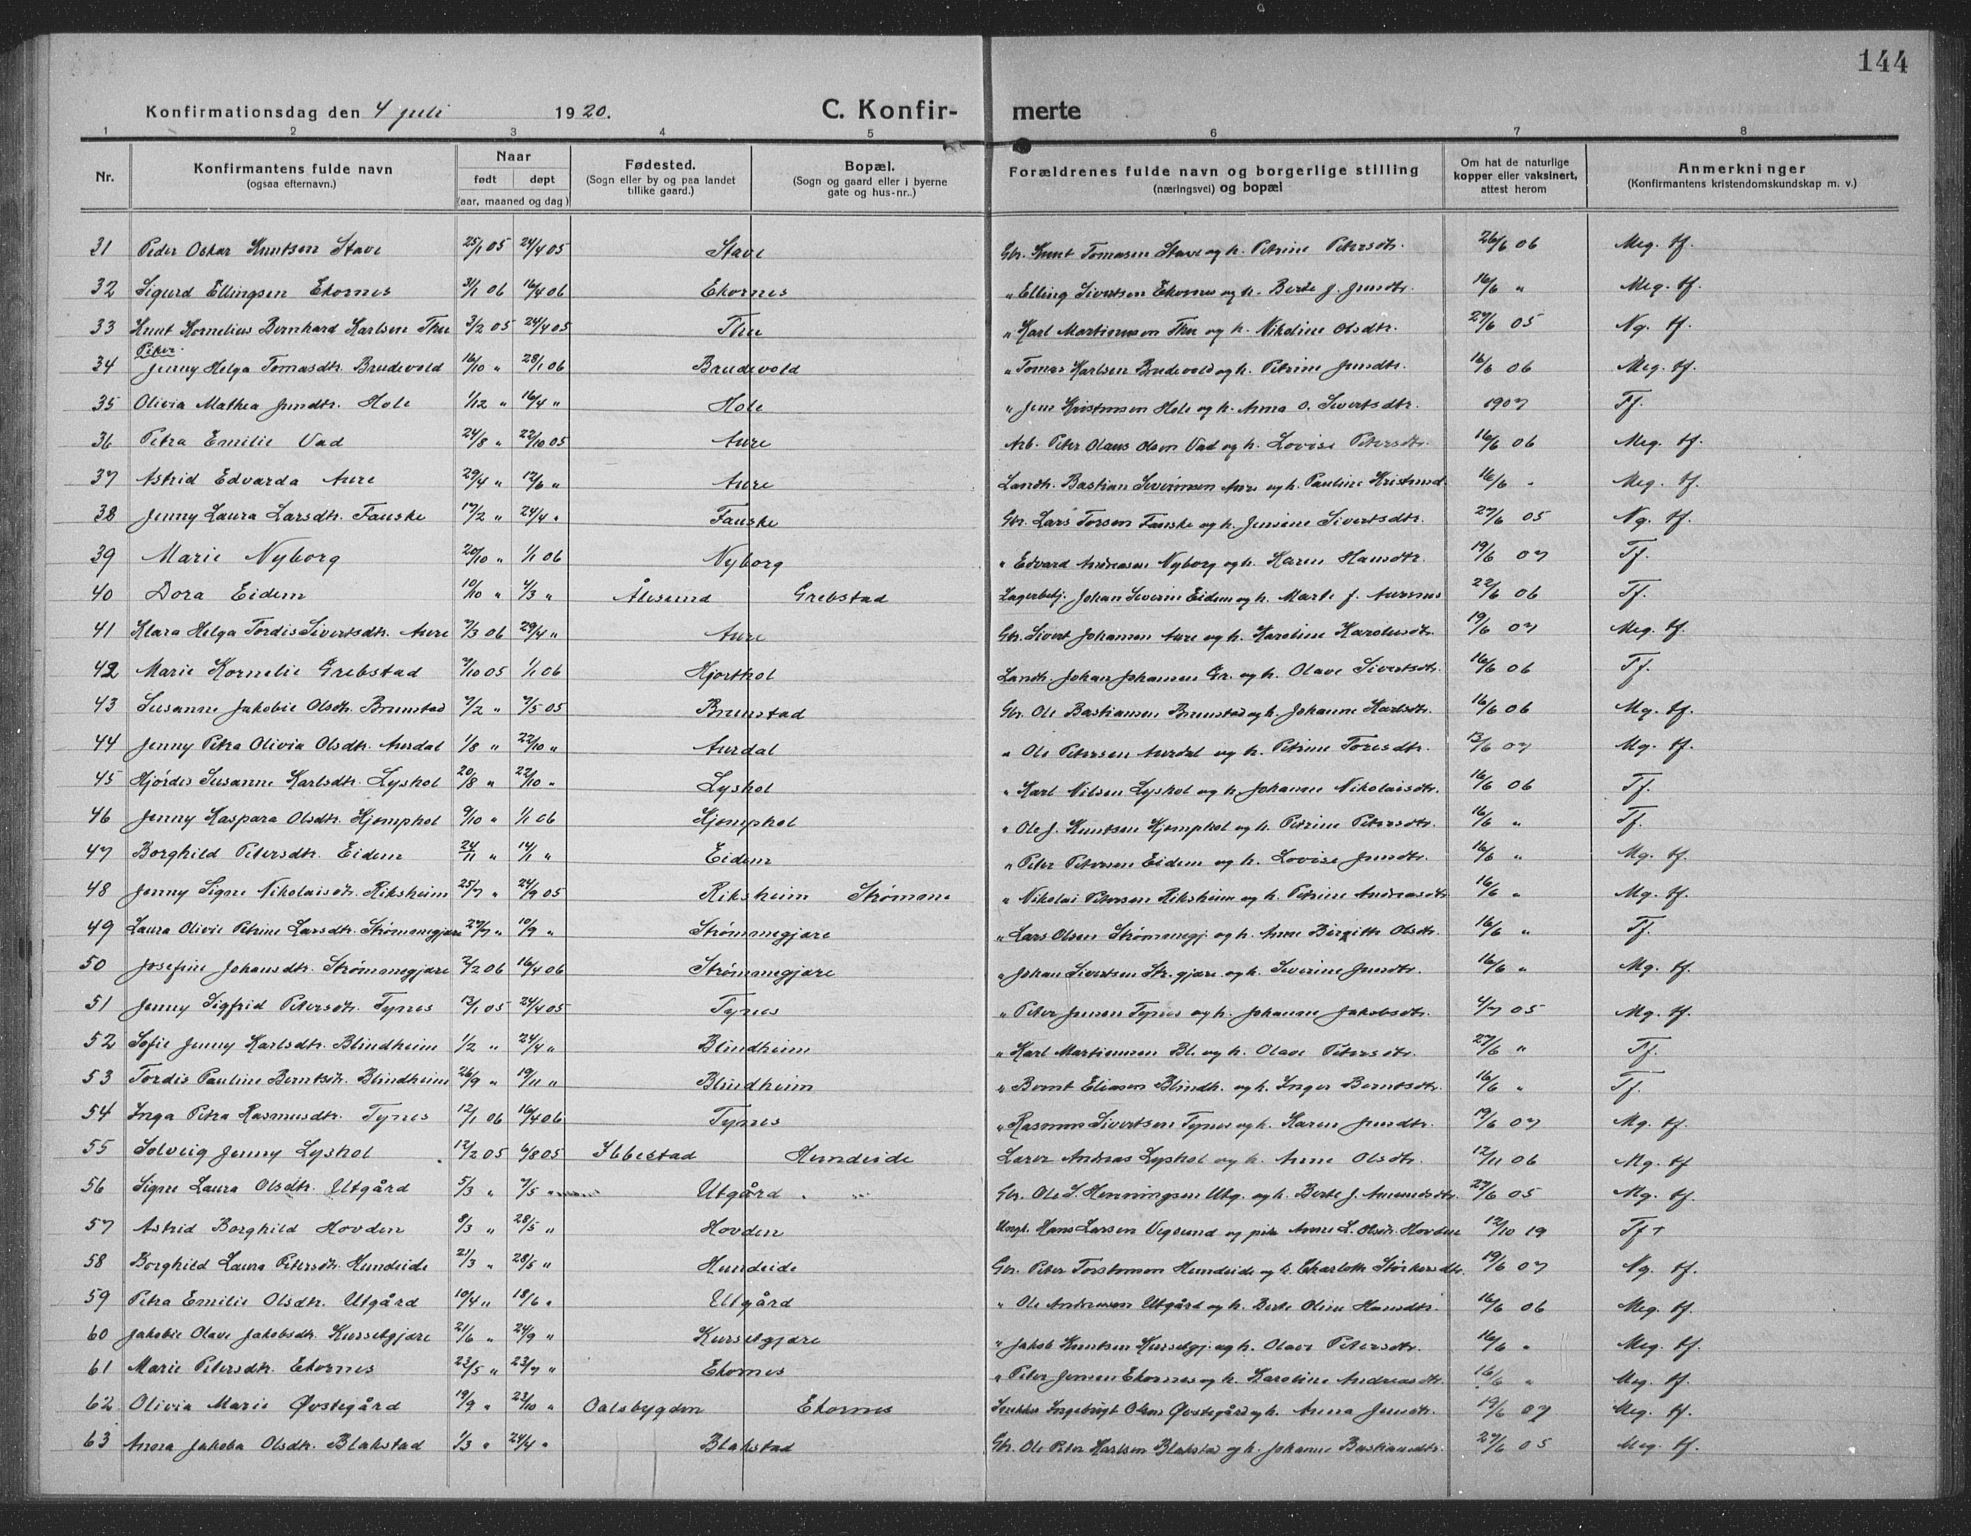 144
Konfirmationsdag den 4 juli 1920. C. Konfir- merte
1 2 3 4 5 6 7 8
Nr. Konfirmantens fulde navn (ogsaa efternavn.) Naar født døpt (aar, maaned og dag) Fødested. (Sogn eller by og paa landet tillike gaard.) Bopæl. (Sogn og gaard eller i byerne gate og hus-nr..) Forældrenes fulde navn og borgerlige stilling (næringsvei) og bopæl Om hat de naturlige kopper eller vaksinert, attest herom Anmerkninger (Konfirmantens kristendomskundskap m. v.)
31 Peder Oskar Knutsen Stave 25/1 05 24/4 05 Stave Gbr. Knut Tomasen Stave og h. Petrine Petersdtr. 26/6 06 Meg. tf.
32 Sigurd Ellingsen Ekornes 31/1 06 16/4 06 Ekornes " Elling Sivertsen Ekornes og h. Berte J. Jensdtr. 16/6 " Meg. tf.
33 Knut Kornelius Bernhard Karlsen Thu 3/2 05 24/4 05 Thu " Karl Martinussen Thu og h. Nikoline Olsdtr. 27/6 05 Ng. tf.
Piker.
34 Jenny Helga Tomasdtr. Brudevold 16/10 " 28/1 06 Brudevold " Tomas Karlsen Brudevold og h. Petrine Jensdtr. 16/6 06 Meg. tf.
35 Olivia Mathea Jensdtr. Hole 1/12 " 16/4 " Hole " Jens Kristensen Hole og h. Anna O. Sivertsdtr. 1907 Tf.
36 Petra Emilie Vad 24/8 " 22/10 05 Aure Arb. Peter Olaus Olsen Vad og h. Lovise Petersdtr. 16/6 06 Meg. tf.
37 Astrid Edvarda Aure 29/4 " 12/6 " Aure Landh. Bastian Severinsen Aure og h. Pauline Kristensd. 16/6 " Meg. tf.
38 Jenny Laura Larsdtr. Fauske 17/2 " 24/4 " Fauske Gbr. Lars Torsen Fauske og h. Jensine Sivertsdtr. 27/6 05 Ng. tf.
39 Marie Nyborg 20/10 " 1/1 06 Nyborg " Edvard Andreasen Nyborg og h. Karen Hansdtr. 19/6 07 Tf.
40 Dora Eidem 10/10 " 4/3 " Ålesund Grebstad Lagerbetj. Johan Severin Eidem og h. Marte J. Aursnes 22/6 06 Tf.
41 Klara Helga Tordis Sivertsdtr. Aure 7/3 06 29/4 " Aure Gbr. Sivert Johansen Aure og h. Karoline Karolusdtr. 19/6 07 Meg. tf.
42 Marie Kornelie Grebstad 7/10 05 1/1 06 Hjorthol Landh. Johan Johansen Gr. og h. Olave Sivertsdtr. 16/6 06 Tf.
43 Susanne Jakobie Olsdtr. Brunstad 7/2 " 7/5 05 Brunstad Gbr. Ole Bastiansen Brunstad og h. Johanne Karlsdtr. 16/6 06 Mg. tf.
44 Jenny Petra Olivia Olsdtr. Aurdal 1/8 " 22/10 " Aurdal " Ole Petersen Aurdal og h. Petrine Toresdtr. 13/6 07 Mg. tf.
45 Hjørdis Susanne Karlsdtr. Lyshol 20/8 " 22/10 " Lyshol " Karl Nilsen Lyshol og h. Johanne Nikolaisdtr. 16/6 06 Tf.
46 Jenny Kaspara Olsdtr. Hjomphol 9/10 " 1/1 06 Hjomphol " Ole J. Knutsen Hjomphol og h. Petrine Petersdtr. 16/6 " Tf.
47 Borghild Petersdtr. Eidem 24/11 " 14/1 " Eidem " Peter Petersen Eidem og h. Lovise Jensdtr. 16/6 " Mg. tf.
48 Jenny Signe Nikolaisdtr. Riksheim 25/7 " 24/9 05 Riksheim Strømme " Nikolai Petersen Riksheim og h. Petrine Andreasdtr. 16/6 " Mg. tf.
49 Laura Olivie Petrine Larsdtr. Strømmegjære 27/7 " 10/9 " Strømmegjære " Lars Olsen Strømmegj. og h. Anne Birgitte Olsdtr. 16/6 " Tf.
50 Josefine Johansdtr. Strømmegjære 2/2 06 16/4 06 Strømmegjære " Johan Sivertsen Str.gjære og h. Severine Jensdtr. 16/6 " Mg. tf.
51 Jenny Sigfrid Petersdtr. Tynes 13/1 05 24/4 05 Tynes " Peter Jensen Tynes og h. Johanne Jakobsdtr. 4/7 05 Mg. tf.
52 Sofie Jenny Karlsdtr. Blindheim 1/2 " 24/4 " Blindheim " Karl Martinusen Bl. og h. Olave Petersdtr. 27/6 " Tf.
53 Tordis Pauline Berntsdtr. Blindheim 26/9 " 19/11 " Blindheim " Bernt Eliasen Blindh. og h. Inger Berntsdtr. 16/6 " Tf.
54 Inga Petra Rasmusdtr. Tynes 12/1 06 16/4 06 Tynes " Rasmus Sivertsen Tynes og h. Karen Jensdtr. 19/6 07 Mg. tf.
55 Solveig Jenny Lyshol 12/2 05 6/8 05 Ibbestad Hundeide Lærer Andreas Lyshol og h. Anne Olsdtr. 12/11 06 Mg. tf
56 Signe Laura Olsdtr. Utgård 5/3 " 7/5 " Utgård Gbr. Ole S. Henningsen Utg. og h. Berte J. Amundsdtr. 27/6 05 Mg. tf.
57 Astrid Borghild Hovden 8/3 " 28/5 " Hovden Ungk. Hans Larsen Vegsund og pike Anne L. Olsdtr. Hovden 12/10 19 Tf +
58 Borghild Laura Petersdtr. Hundeide 21/3 " 28/5 " Hundeide Gbr. Peter Torstensen Hundeide og h. Charlotte Størkersdtr. 19/6 07 Ng. tf.
59 Petra Emilie Olsdtr. Utgård 10/4 " 18/6 " Utgård " Ole Andreasen Utgård og h. Berte Oline Hansdtr. 16/6 06 Meg. tf.
60 Jakobie Olave Jakobsdtr. Kursetgjære 21/6 " 24/9 " Kursetgjære " Jakob Knutsen Kursetgj. og h. Olave Petersdtr. 16/6 " Meg. tf.
61 Marie Petersdtr. Ekornes 22/5 " 23/7 " Ekornes " Peter Jensen Ekornes og h. Karoline Andreasdtr. 16/6 " Meg. tf.
62 Olivia Marie Øvstegård 19/9 " 23/10 " Oalsbygden Ekornes Ingebrigt Olsen Øvstegård og h. Anna Jensdtr. 19/6 07 Meg. tf.
63 Anna Jakoba Olsdtr. Blakstad 1/3 " 24/4 " Blakstad Gbr. Ole Peter Karlsen Blakstad og h. Johanne Bastiansdtr. 27/6 05 Meg. tf.